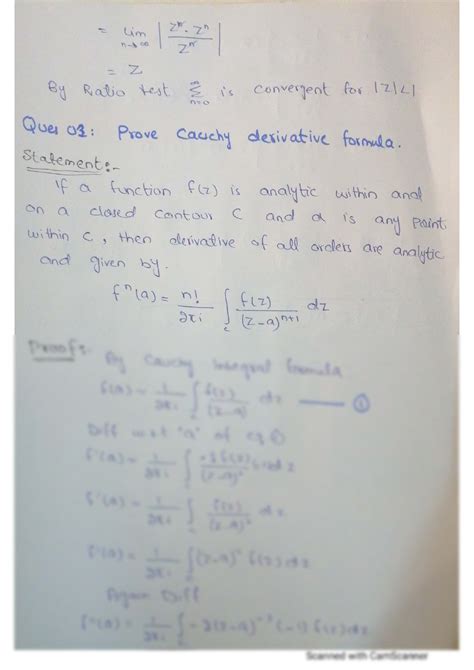 = lim n→∞ | Zⁿ · Zⁿ / Zⁿ |
= Z
By Ratio test ∑ n=0 ∞ is convergent for |Z|<1
Ques 03: Prove Cauchy derivative formula.
Statement:-
If a function f(z) is analytic within and
on a closed contour C and a is any point
within C, then derivative of all orders are analytic
and given by.
fⁿ(a) = n!/2πi ∫c f(z)/(z-a)ⁿ⁺¹ dz
Proof:-
By Cauchy Integral formula
f(a) = 1/2πi ∫c f(z)/(z-a) dz —— ①
Diff w.r.t "a" of eq ①
f'(a) = 1/2πi ∫c
f'(a) = 1/2πi ∫c f(z)/(z-a)² dz
f'(a) = 1/2πi ∫c (z-a)⁻² f(z) dz
Again Diff
f''(a) = 1/2πi ∫c -2(z-a)⁻³ (-1) f(z) dz
Scanned with CamScanner